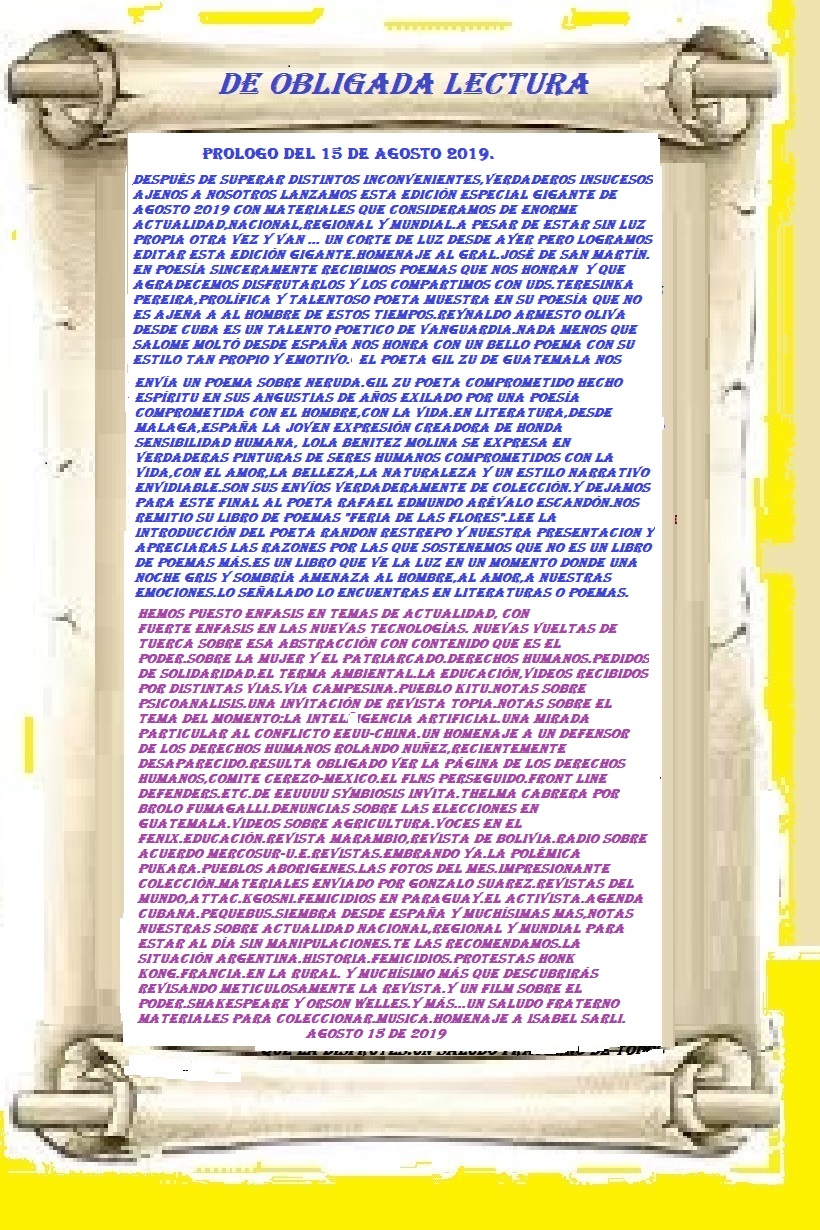 DE OBLIGADA LECTURA
PROLOGO DEL 15 DE AGOSTO 2019.
DESPUÉS DE SUPERAR DISTINTOS INCONVENIENTES,VERDADEROS INSUCESOS
AJENOS A NOSOTROS LANZAMOS ESTA EDICIÓN ESPECIAL GIGANTE DE
AGOSTO 2019 CON MATERIALES QUE CONSIDERAMOS DE ENORME
ACTUALIDAD,NACIONAL,REGIONAL Y MUNDIAL.A PESAR DE ESTAR SIN LUZ
PROPIA OTRA VEZ Y VAN ... UN CORTE DE LUZ DESDE AYER PERO LOGRAMOS
EDITAR ESTA EDICIÓN GIGANTE.HOMENAJE AL GRAL.JOSÉ DE SAN MARTÍN.
EN POESÍA SINCERAMENTE RECIBIMOS POEMAS QUE NOS HONRAN Y QUE
AGRADECEMOS DISFRUTARLOS Y LOS COMPARTIMOS CON UDS.TERESINKA
PEREIRA,PROLÍFICA Y TALENTOSO POETA MUESTRA EN SU POESÍA QUE NO
ES AJENA A AL HOMBRE DE ESTOS TIEMPOS.REYNALDO ARMESTO OLIVA
DESDE CUBA ES UN TALENTO POETICO DE VANGUARDIA.NADA MENOS QUE
SALOME MOLTÓ DESDE ESPAÑA NOS HONRA CON UN BELLO POEMA CON SU
ESTILO TAN PROPIO Y EMOTIVO. EL POETA GIL ZU DE GUATEMALA NOS
ENVÍA UN POEMA SOBRE NERUDA.GIL ZU POETA COMPROMETIDO HECHO
ESPÍRITU EN SUS ANGUSTIAS DE AÑOS EXILADO POR UNA POESÍA
COMPROMETIDA CON EL HOMBRE,CON LA VIDA.EN LITERATURA,DESDE
MALAGA,ESPAÑA LA JOVEN EXPRESIÓN CREADORA DE HONDA
SENSIBILIDAD HUMANA, LOLA BENITEZ MOLINA SE EXPRESA EN
VERDADERAS PINTURAS DE SERES HUMANOS COMPROMETIDOS CON LA
VIDA,CON EL AMOR,LA BELLEZA,LA NATURALEZA Y UN ESTILO NARRATIVO
ENVIDIABLE.SON SUS ENVÍOS VERDADERAMENTE DE COLECCIÓN.Y DEJAMOS
PARA ESTE FINAL AL POETA RAFAEL EDMUNDO ARÉVALO ESCANDÓN.NOS
REMITIO SU LIBRO DE POEMAS "FERIA DE LAS FLORES".LEE LA
INTRODUCCIÓN DEL POETA RANDON RESTREPO Y NUESTRA PRESENTACION Y
APRECIARAS LAS RAZONES POR LAS QUE SOSTENEMOS QUE NO ES UN LIBRO
DE POEMAS MÁS.ES UN LIBRO QUE VE LA LUZ EN UN MOMENTO DONDE UNA
NOCHE GRIS Y SOMBRÍA AMENAZA AL HOMBRE,AL AMOR,A NUESTRAS
EMOCIONES.LO SEÑALADO LO ENCUENTRAS EN LITERATURAS O POEMAS.
HEMOS PUESTO ENFASIS EN TEMAS DE ACTUALIDAD, CON
FUERTE ENFASIS EN LAS NUEVAS TECNOLOGÍAS. NUEVAS VUELTAS DE
TUERCA SOBRE ESA ABSTRACCIÓN CON CONTENIDO QUE ES EL
PODER.SOBRE LA MUJER Y EL PATRIARCADO.DERECHOS HUMANOS.PEDIDOS
DE SOLIDARIDAD.EL TERMA AMBIENTAL.LA EDUCACIÓN,VIDEOS RECIBIDOS
POR DISTINTAS VIAS.VIA CAMPESINA.PUEBLO KITU.NOTAS SOBRE
PSICOANALISIS.UNA INVITACIÓN DE REVISTA TOPIA.NOTAS SOBRE EL
TEMA DEL MOMENTO:LA INTELIGENCIA ARTIFICIAL.UNA MIRADA
PARTICULAR AL CONFLICTO EEUU-CHINA.UN HOMENAJE A UN DEFENSOR
DE LOS DERECHOS HUMANOS ROLANDO NUÑEZ,RECIENTEMENTE
DESAPARECIDO.RESULTA OBLIGADO VER LA PÁGINA DE LOS DERECHOS
HUMANOS,COMITE CEREZO-MEXICO.EL FLNS PERSEGUIDO.FRONT LINE
DEFENDERS.ETC.DE EEUUUU SYMBIOSIS INVITA.THELMA CABRERA POR
BROLO FUMAGALLI.DENUNCIAS SOBRE LAS ELECCIONES EN
GUATEMALA.VIDEOS SOBRE AGRICULTURA.VOCES EN EL
FENIX.EDUCACIÓN.REVISTA MARAMBIO,REVISTA DE BOLIVIA.RADIO SOBRE
ACUERDO MERCOSUR-U.E.REVISTAS.EMBRANDO YA.LA POLÉMICA
PUKARA.PUEBLOS ABORIGENES.LAS FOTOS DEL MES.IMPRESIONANTE
COLECCIÓN.MATERIALES ENVIADO POR GONZALO SUAREZ.REVISTAS DEL
MUNDO,ATTAC.KGOSNI.FEMICIDIOS EN PARAGUAY.EL ACTIVISTA.AGENDA
CUBANA.PEQUEBUS.SIEMBRA DESDE ESPAÑA Y MUCHÍSIMAS MAS,NOTAS
NUESTRAS SOBRE ACTUALIDAD NACIONAL,REGIONAL Y MUNDIAL PARA
ESTAR AL DÍA SIN MANIPULACIONES.TE LAS RECOMENDAMOS.LA
SITUACIÓN ARGENTINA.HISTORIA.FEMICIDIOS.PROTESTAS HONK
KONG.FRANCIA.EN LA RURAL. Y MUCHÍSIMO MÁS QUE DESCUBRIRÁS
REVISANDO METICULOSAMENTE LA REVISTA.Y UN FILM SOBRE EL
PODER.SHAKESPEARE Y ORSON WELLES.Y MÁS...UN SALUDO FRATERNO
MATERIALES PARA COLECCIONAR.MUSICA.HOMENAJE A ISABEL SARLI.
AGOSTO 15 DE 2019